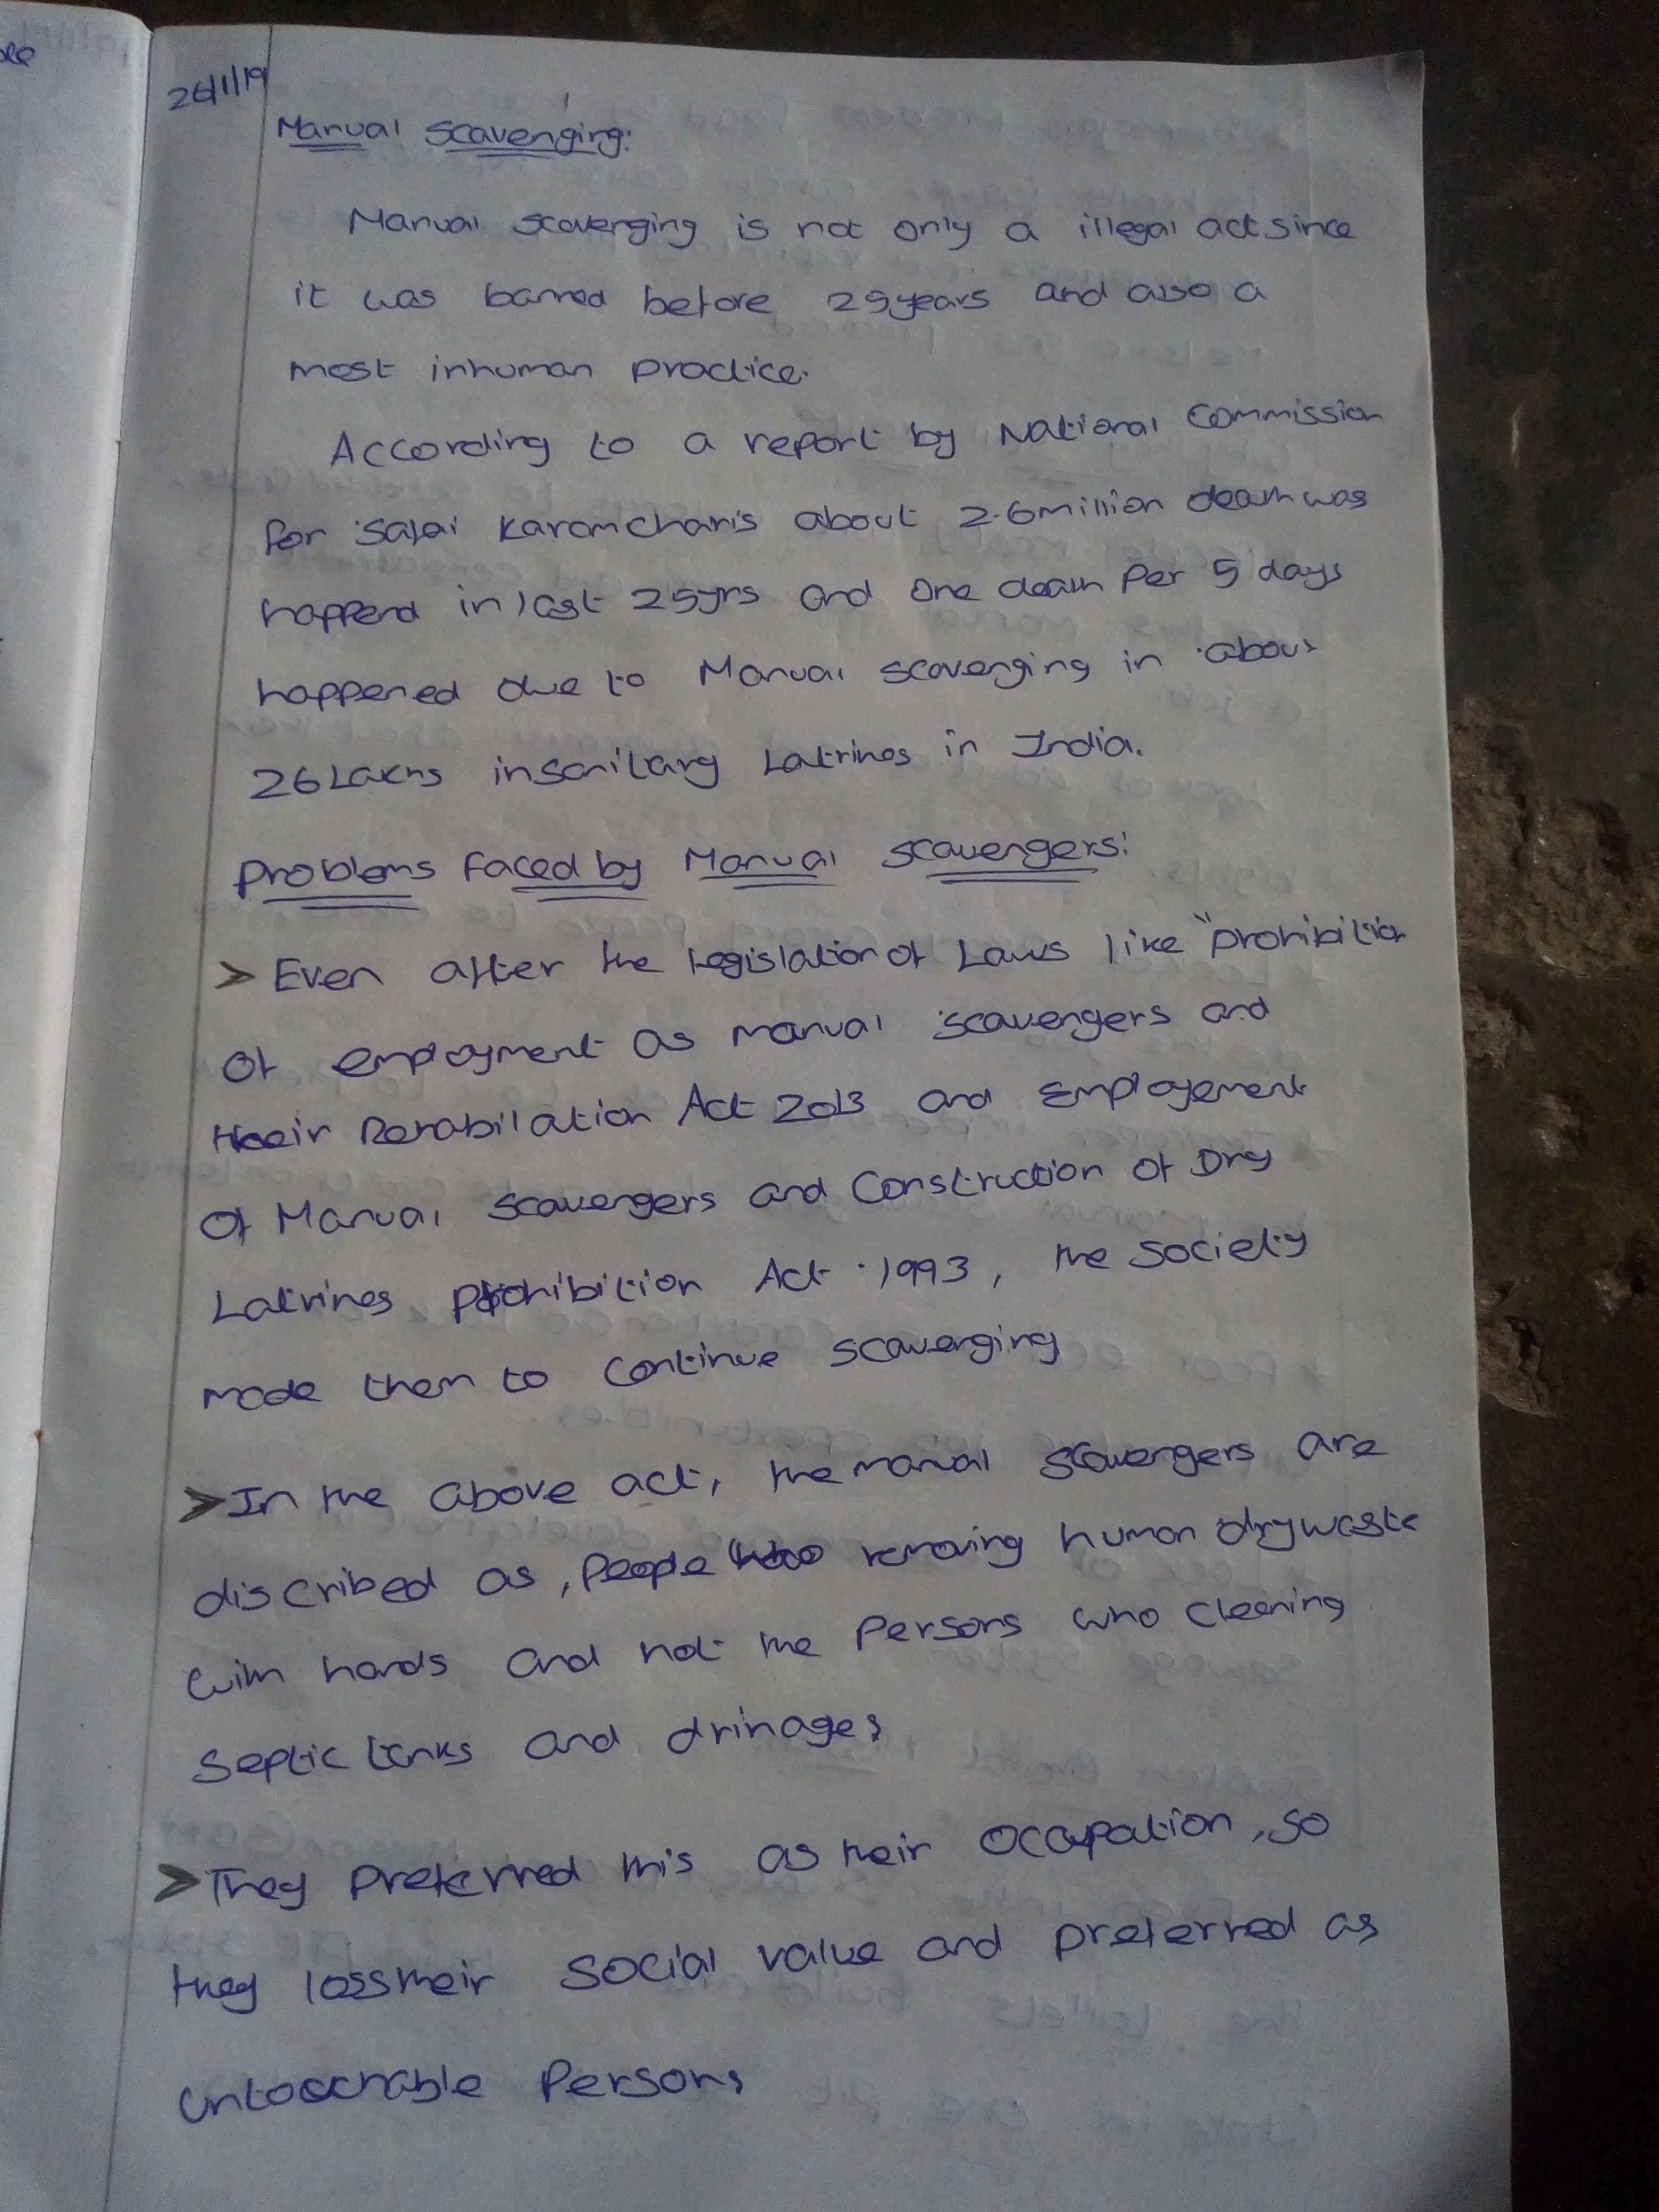 26/1/19
Manual Scavenging:
Manual scavenging is not only a illegal act since
it was banned before 25years and also a
most inhuman practice.
According to a report by National Commission
for Safai Karamcharis about 2.6million death was
happend in last 25yrs and one death per 5 days
happened due to Manual scavenging in about
26 Lakhs insanitary Latrines in India.
Problems faced by Manual scavengers:
> Even after the legislation of Laws like "prohibition
of employment as manual scavengers and
their Rehabilation Act 2013 and Employement
of Manual scavengers and Construction of Dry
Latrines prohibition Act 1993, the society
made them to continue scavenging
> In the above act, the manual scavengers are
discribed as, people removing human dry waste
with hands and not the persons who cleaning
septic tanks and drinages
> They preferred this as their occupation, so
they loss their social value and preferred as
untouchable persons